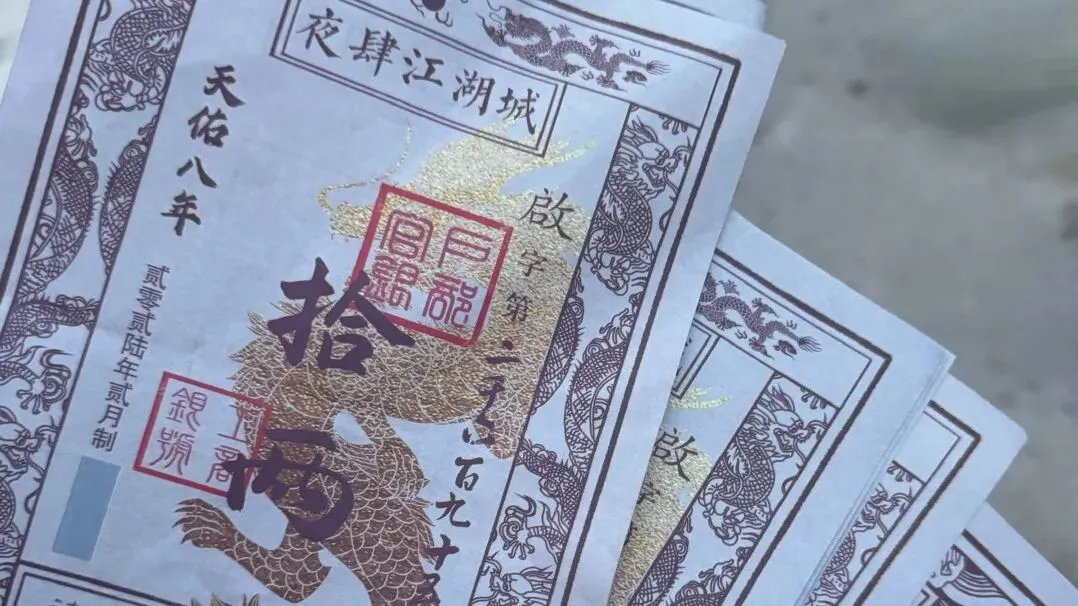 夜肆江湖城
啟字第二千八百九十
戶部官銀
拾两
天佑八年
贰零贰陆年贰月制
銀號
啟字